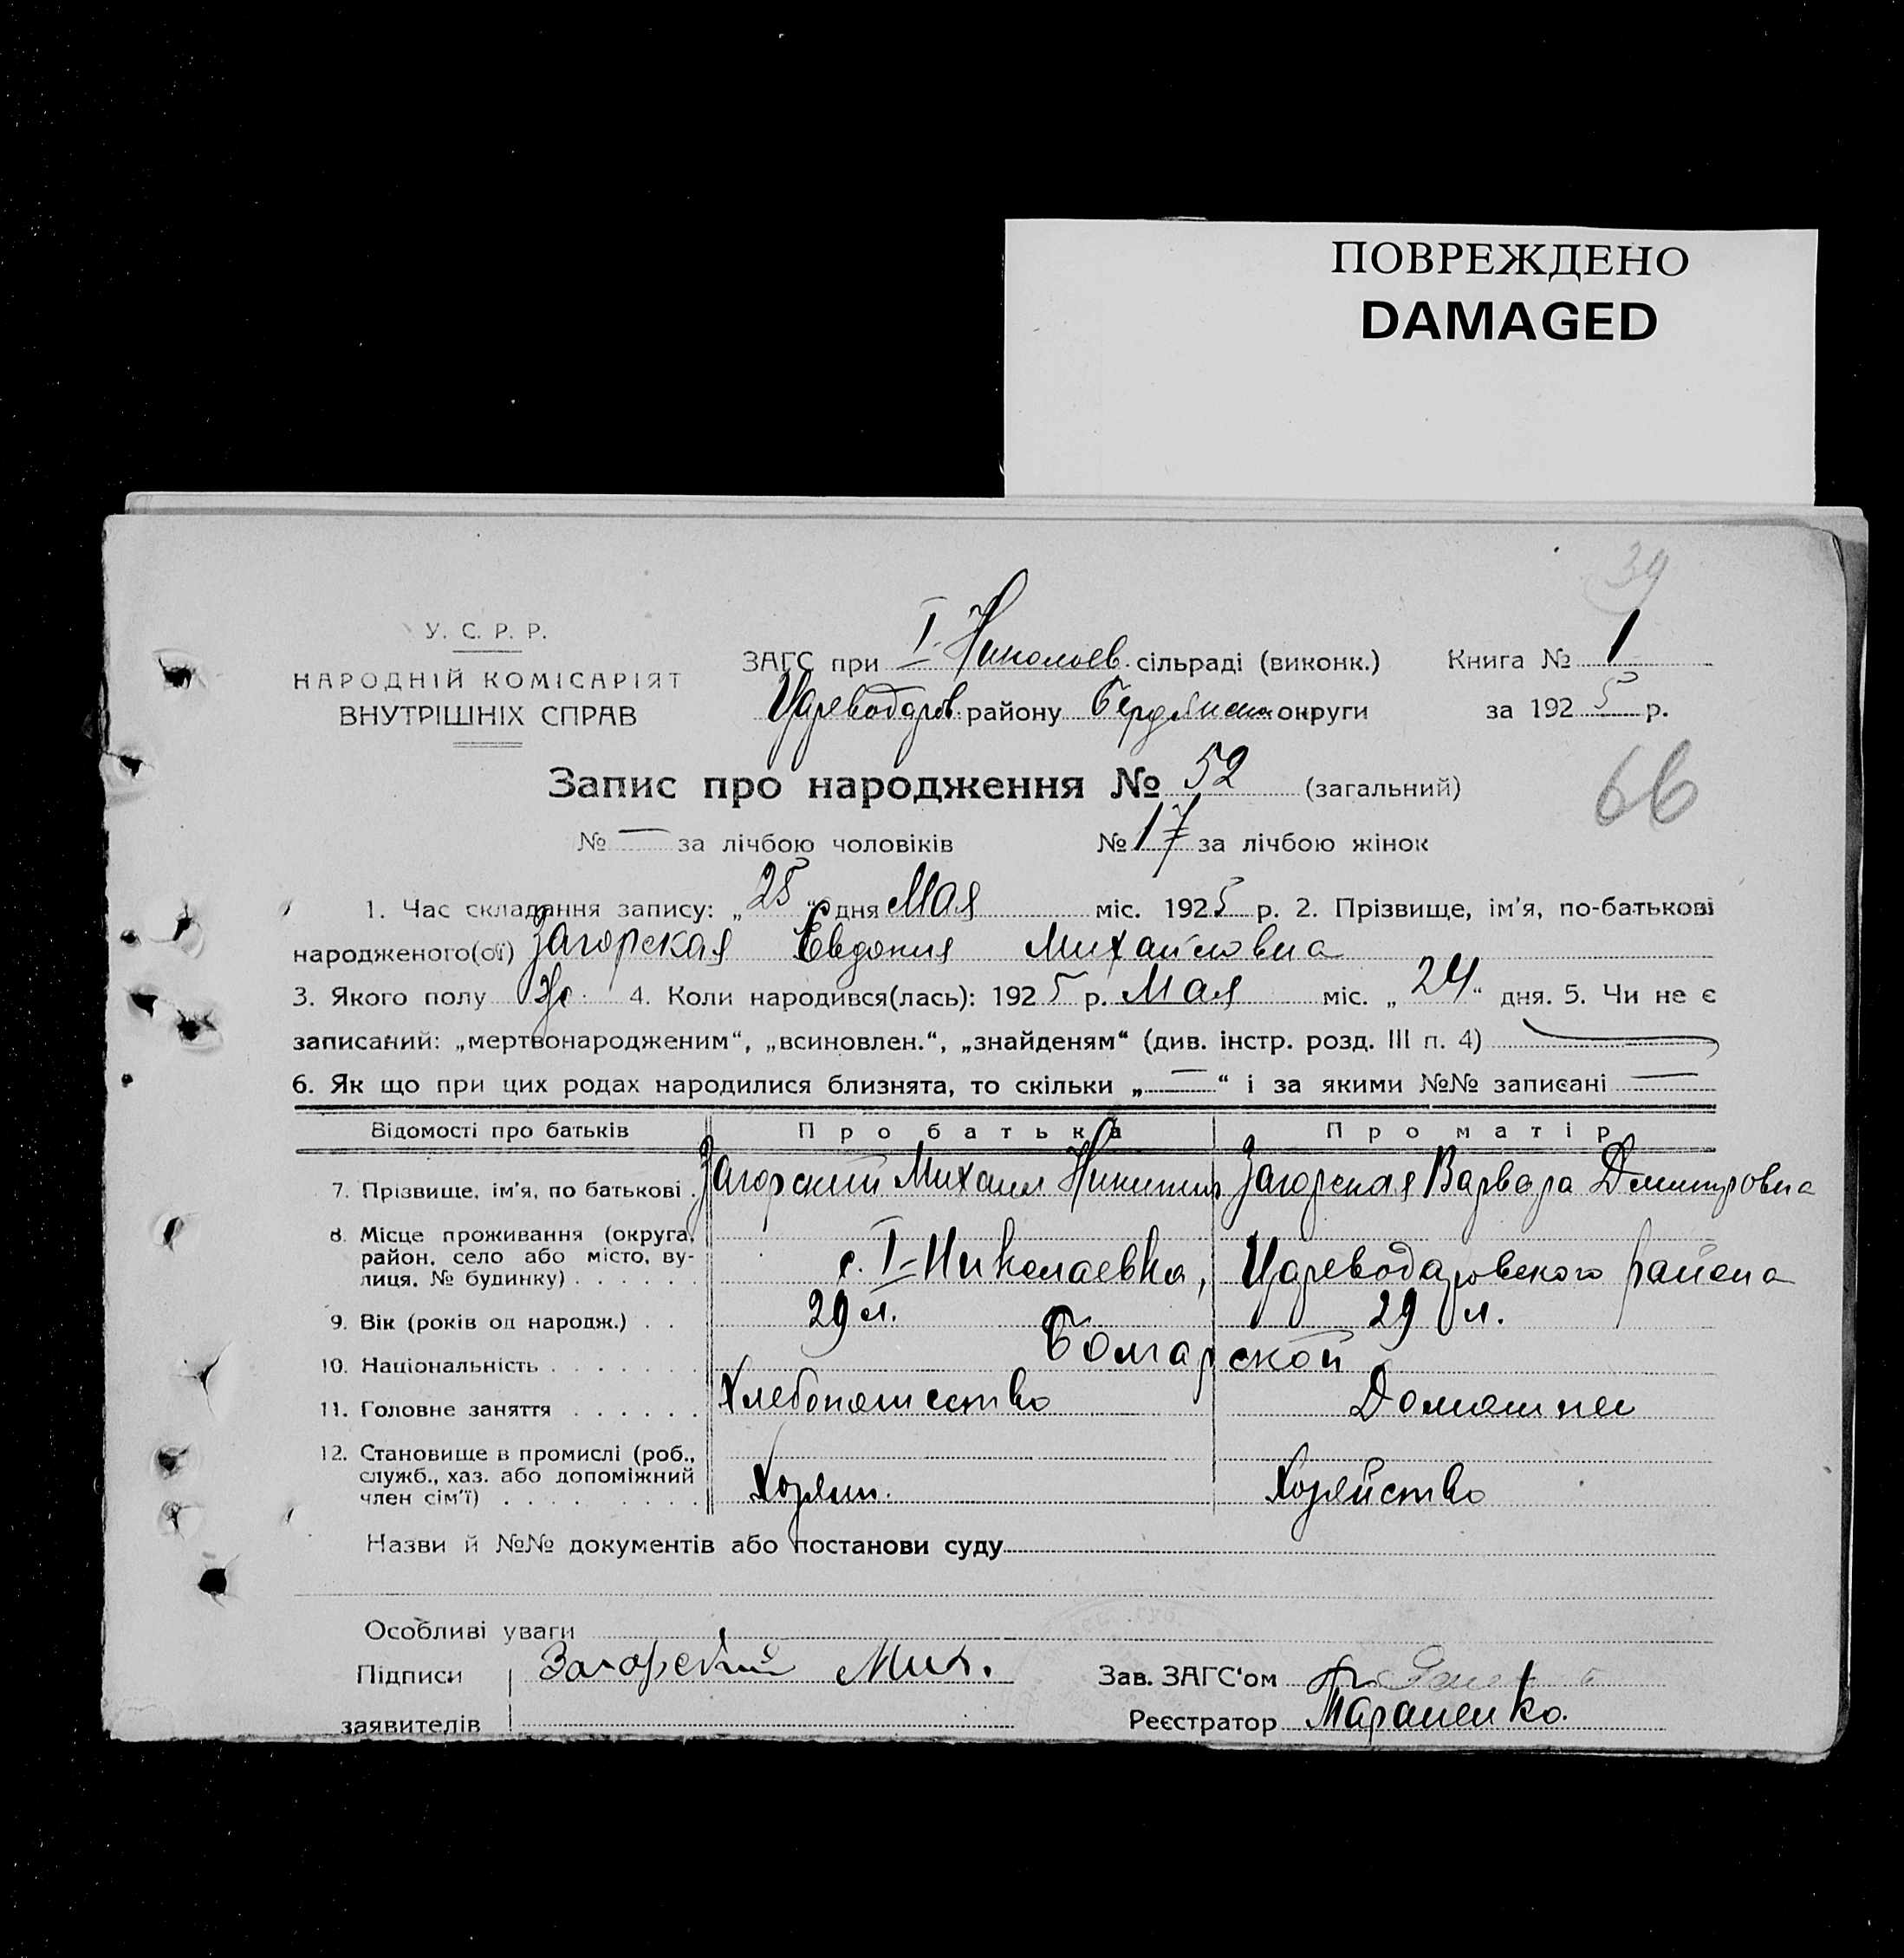 ПОВРЕЖДЕНО
DAMAGED
39
У. С. Р. Р.
НАРОДНІЙ КОМІСАРІЯТ
ВНУТРІШНІХ СПРАВ
ЗАГС при I Николаев. сільраді (виконк.) Книга № 1
Цареводаров. району Бердянской округи за 1925 р.
Запис про народження № 52 (загальний)
66
№ — за лічбою чоловіків № 17 за лічбою жінок
1. Час складання запису: „25“ дня Мая міс. 1925 р. 2. Прізвище, ім'я, по-батькові
народженого(ої) Загорская Евдокия Михайловна
3. Якого полу ж. 4. Коли народився(лась): 1925 р. Мая міс. „24“ дня. 5. Чи не є
записаний: „мертвонародженим“, „всиновлен.“, „знайденям“ (див. інстр. розд. III п. 4) —
6. Як що при цих родах народилися близнята, то скільки „—“ і за якими №№ записані —
Відомості про батьків Про батька Про матір
7. Прізвище, ім'я, по батькові Загорский Михаил Никитич Загорская Варвара Дмитровна
8. Місце проживання (округа,
район, село або місто, ву-
лиця, № будинку) с. I Николаевка, Цареводаровского района
9. Вік (років од народж.) 29 л. 29 л.
10. Національність Болгарской
11. Головне заняття Хлебопашество Домашнее
12. Становище в промислі (роб.,
служб., хаз. або допоміжний
член сім'ї) Хозяин. Хозяйство
Назви й №№ документів або постанови суду
Особливі уваги
Підписи Загорский Мих. Зав. ЗАГС'ом
заявителів Реєстратор Тараненко.